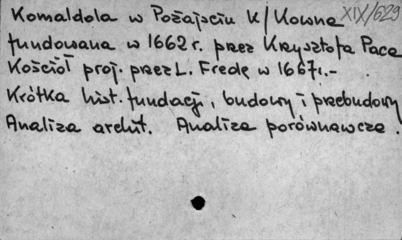 Komaldola w Pożajściu k/Kowna XIX/629
fundowana w 1662 r. przez Krzysztofa Paca
Kościół proj. przez L. Fredę w 1667r.-
Krótka hist. fundacji, budowy i przebudowy
Analiza archit. Analiza porównawcza.